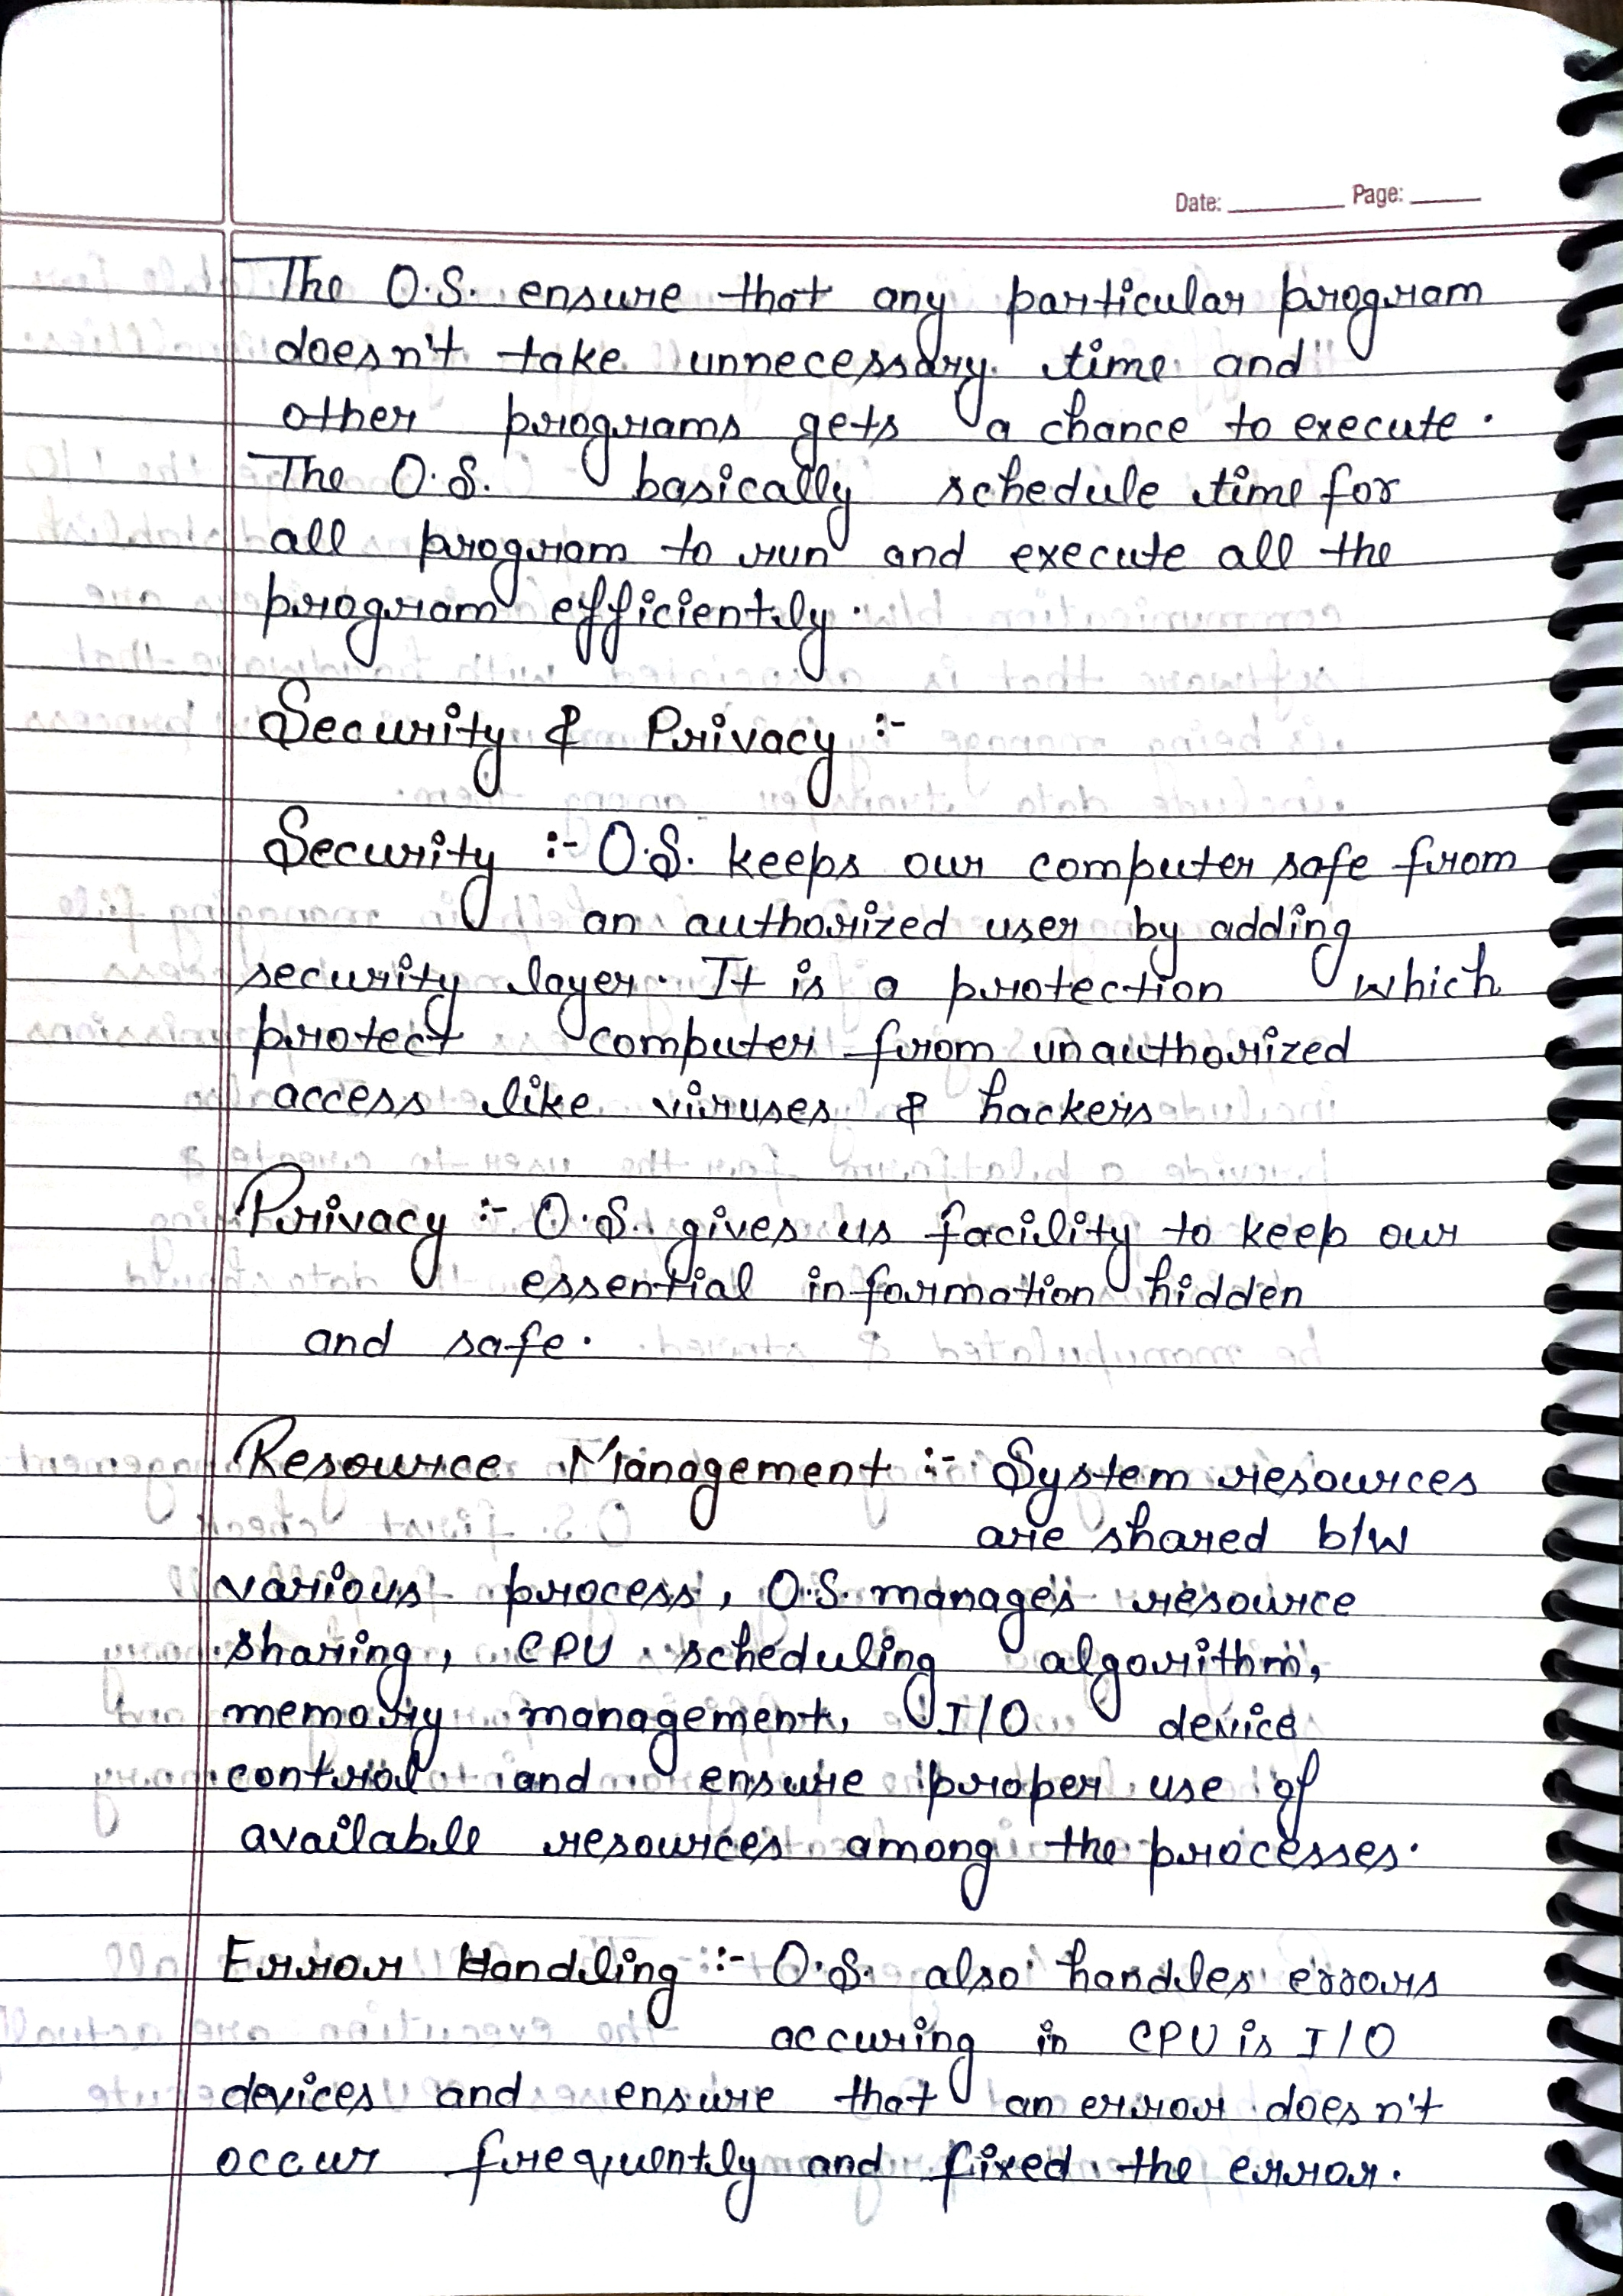 Date: Page:
The O.S. ensure that any particular program
doesn't take unnecessary time and
other programs gets a chance to execute.
The O.S. basically schedule time for
all program to run and execute all the
program efficiently.
Security & Privacy :-
Security :- O.S. keeps our computer safe from
an authorized user by adding
security layer. It is a protection which
protect computer from unauthorized
access like viruses & hackers
Privacy :- O.S. gives us facility to keep our
essential information hidden
and safe.
Resource Management :- System resources
are shared b/w
various process, O.S. manages resource
sharing, CPU scheduling algorithm,
memory management, I/O device
control and ensure proper use of
availabll resources among the processes.
Error Handling :- O.S. also handles errors
accuring in CPU is I/O
devices and ensure that an error doesn't
occur frequently and fixed the error.